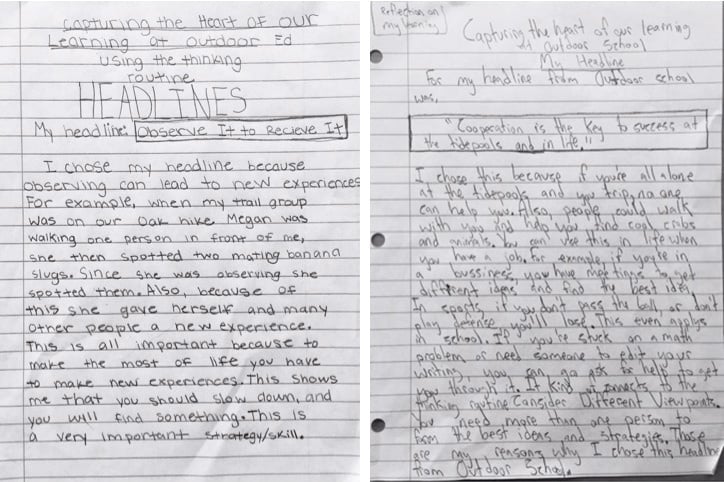 Capturing the Heart of our
Learning at Outdoor Ed
using the thinking
routine
HEADLINES
My headline: Observe It to Recieve It
I chose my headline because
observing can lead to new experiences
For example, when my trail group
was on our Oak hike Megan was
walking one person in front of me,
she then spotted two mating banana
slugs. Since she was observing she
spotted them. Also, because of
this she gave herself and many
other people a new experience.
This is all important because to
make the most of life you have
to make new experiences. This shows
me that you should slow down, and
you will find something. This is
a very important strategy/skill.
Reflection on
my learning
Capturing the heart of our learning
at Outdoor School
My Headline
For my headline from Outdoor school
was,
"Cooperation is the key to success at
the tidepools and in life."
I chose this because if you're all alone
at the tidepools and you trip, no one
can help you. Also, people could walk
with you and help you find cool crabs
and animals. You can use this in life when
you have a job. For example, if you're in
a bussiness you have meetings to get
different ideas and find the best idea.
In sports, if you don't pass the ball, or don't
play defense you'll lose. This even applys
in school. If you're stuck on a math
problem or need someone to edit your
writing, you can go ask for help to get
you through it. It kind of connects to the
thinking routine Consider Different Viewpoints.
You need more than one person to
form the best ideas and strategies. Those
are my reasons why I chose this headline
from Outdoor School.